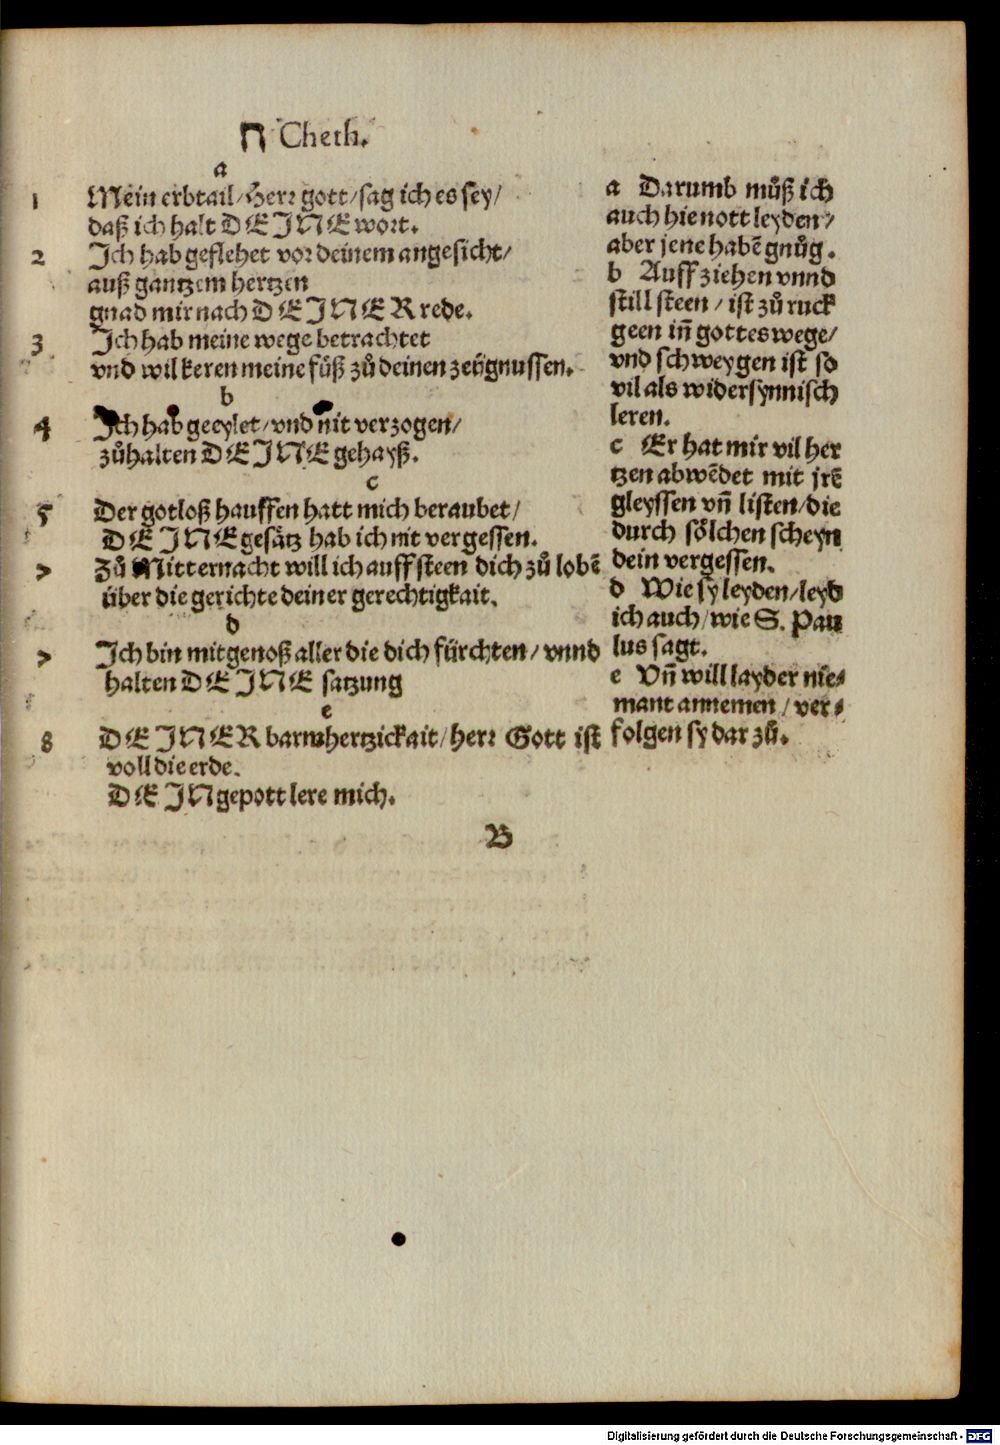 ח Cheth.
a
1 Mein erbtail/Herr gott/sag ich es sey/
daß ich halt DEINE wort.
2 Ich hab geflehet vor deinem angesicht/
auß gantzem hertzen
gnad mir nach DEINER rede.
3 Ich hab meine wege betrachtet
vnd wil keren meine fůß zů deinen zeügnussen.
b
4 Ich hab geeylet/vnd nit verzogen/
zůhalten DEINE gehayß.
c
5 Der gotloß hauffen hatt mich beraubet/
DEINE gesätz hab ich nit vergessen.
> Zů Mitternacht will ich auff steen dich zů lobē
über die gerichte deiner gerechtigkait.
d
> Ich bin mitgenoß aller die dich fürchten/vnnd
halten DEINE satzung
e
8 DEINER barmhertzickait/herr Gott ist
voll die erde.
DEIN gepott lere mich.
B
a Darumb můß ich
auch hie nott leyden/
aber jene habē gnůg.
b Auff ziehen vnnd
still steen/ist zů ruck
geen iñ gottes wege/
vnd schweygen ist so
vil als widersynnisch
leren.
c Er hat mir vil her
tzen abwēdet mit jrē
gleyssen vñ listen/die
durch sölchen scheyn
dein vergessen.
d Wie sy leyden/leyd
ich auch/wie S. Pau
lus sagt.
e Vñ will layder nie⸗
mant annemen/ver⸗
folgen sy dar zů.
Digitalisierung gefördert durch die Deutsche Forschungsgemeinschaft - DFG